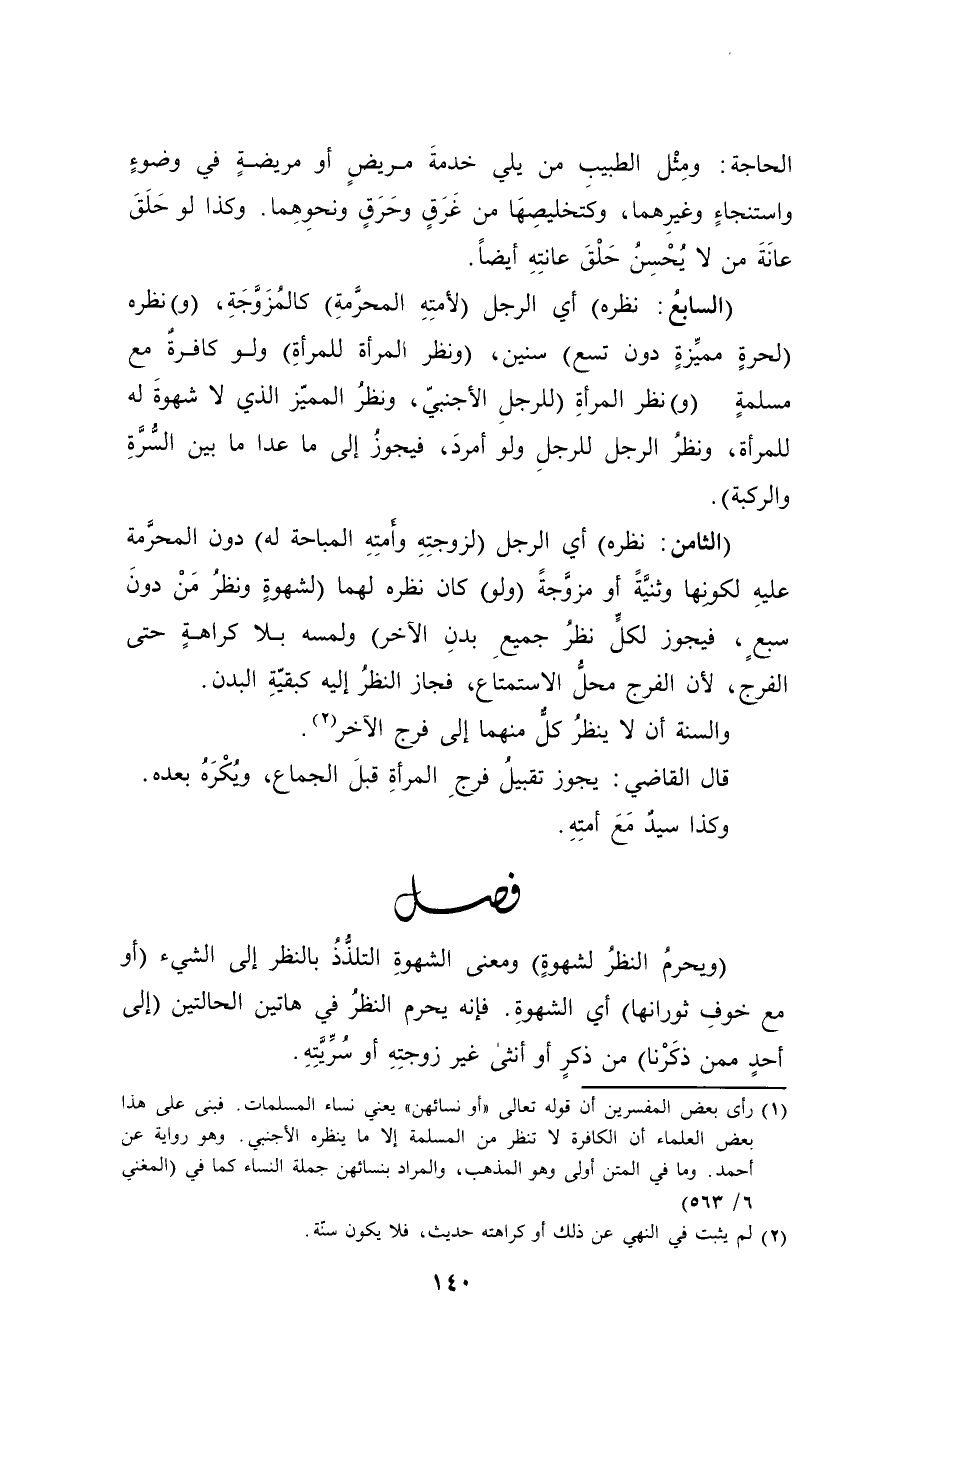 الحاجة: ومِثْل الطبيبِ من يلي خدمةَ مريضٍ أو مريضةٍ في وضوءٍ
واستنجاءٍ وغيرِهما، وكتخليصِهَا من غَرَقٍ وحَرَقٍ ونحوِهما. وكذا لو حَلَقَ
عانَةَ من لا يُحْسِنُ حَلْقَ عانتِهِ أيضاً.
(السابعُ: نظره) أي الرجل (لأمتِهِ المحرَّمةِ) كالمُزَوَّجَةِ، (و) نظره
(لحرةٍ مميِّزةٍ دون تسع) سنين، (ونظر المرأة للمرأةِ) ولو كافرةٌ مع
مسلمةٍ (و) نظر المرأةِ (للرجلِ الأجنبيّ، ونظرُ المميّز الذي لا شهوةَ له
للمرأة، ونظرُ الرجل للرجلِ ولو أمردَ، فيجوزُ إلى ما عدا ما بين السُّرَّةِ
والركبة).
(الثامن: نظره) أي الرجل (لزوجتِهِ وأَمتِهِ المباحة له) دون المحرَّمة
عليهِ لكونِها وثنيَّةً أو مزوَّجةً (ولو) كان نظره لهما (لشهوةٍ ونظرُ مَنْ دونَ
سبعٍ، فيجوز لكلٍّ نظرُ جميعِ بدنِ الآخر) ولمسه بلا كراهةٍ حتى
الفرج، لأن الفرج محلُّ الاستمتاع، فجاز النظرُ إليه كبقيّةِ البدن.
والسنة أن لا ينظرُ كلٌّ منهما إلى فرج الآخر(٢).
قال القاضي: يجوز تقبيلُ فرجِ المرأةِ قبلَ الجماع، ويُكْرَهُ بعده.
وكذا سيدٌ مَعَ أمتِهِ.
فصل
(ويحرمُ النظرُ لشهوةٍ) ومعنى الشهوةِ التلذُّذُ بالنظر إلى الشيء (أو
مع خوفِ ثورانها) أي الشهوةِ. فإنه يحرم النظرُ في هاتين الحالتين (إلى
أحدٍ ممن ذكَرْنا) من ذكرٍ أو أنثىٰ غير زوجتِهِ أو سُرِّيَّتِهِ.
(١) رأى بعض المفسرين أن قوله تعالى «أو نسائهن» يعني نساء المسلمات. فبنى على هذا
بعض العلماء أن الكافرة لا تنظر من المسلمة إلا ما ينظره الأجنبي. وهو رواية عن
أحمد. وما في المتن أولى وهو المذهب، والمراد بنسائهن جملة النساء كما في (المغني
٦/ ٥٦٣)
(٢) لم يثبت في النهي عن ذلك أو كراهته حديث، فلا يكون سنّة.
١٤٠